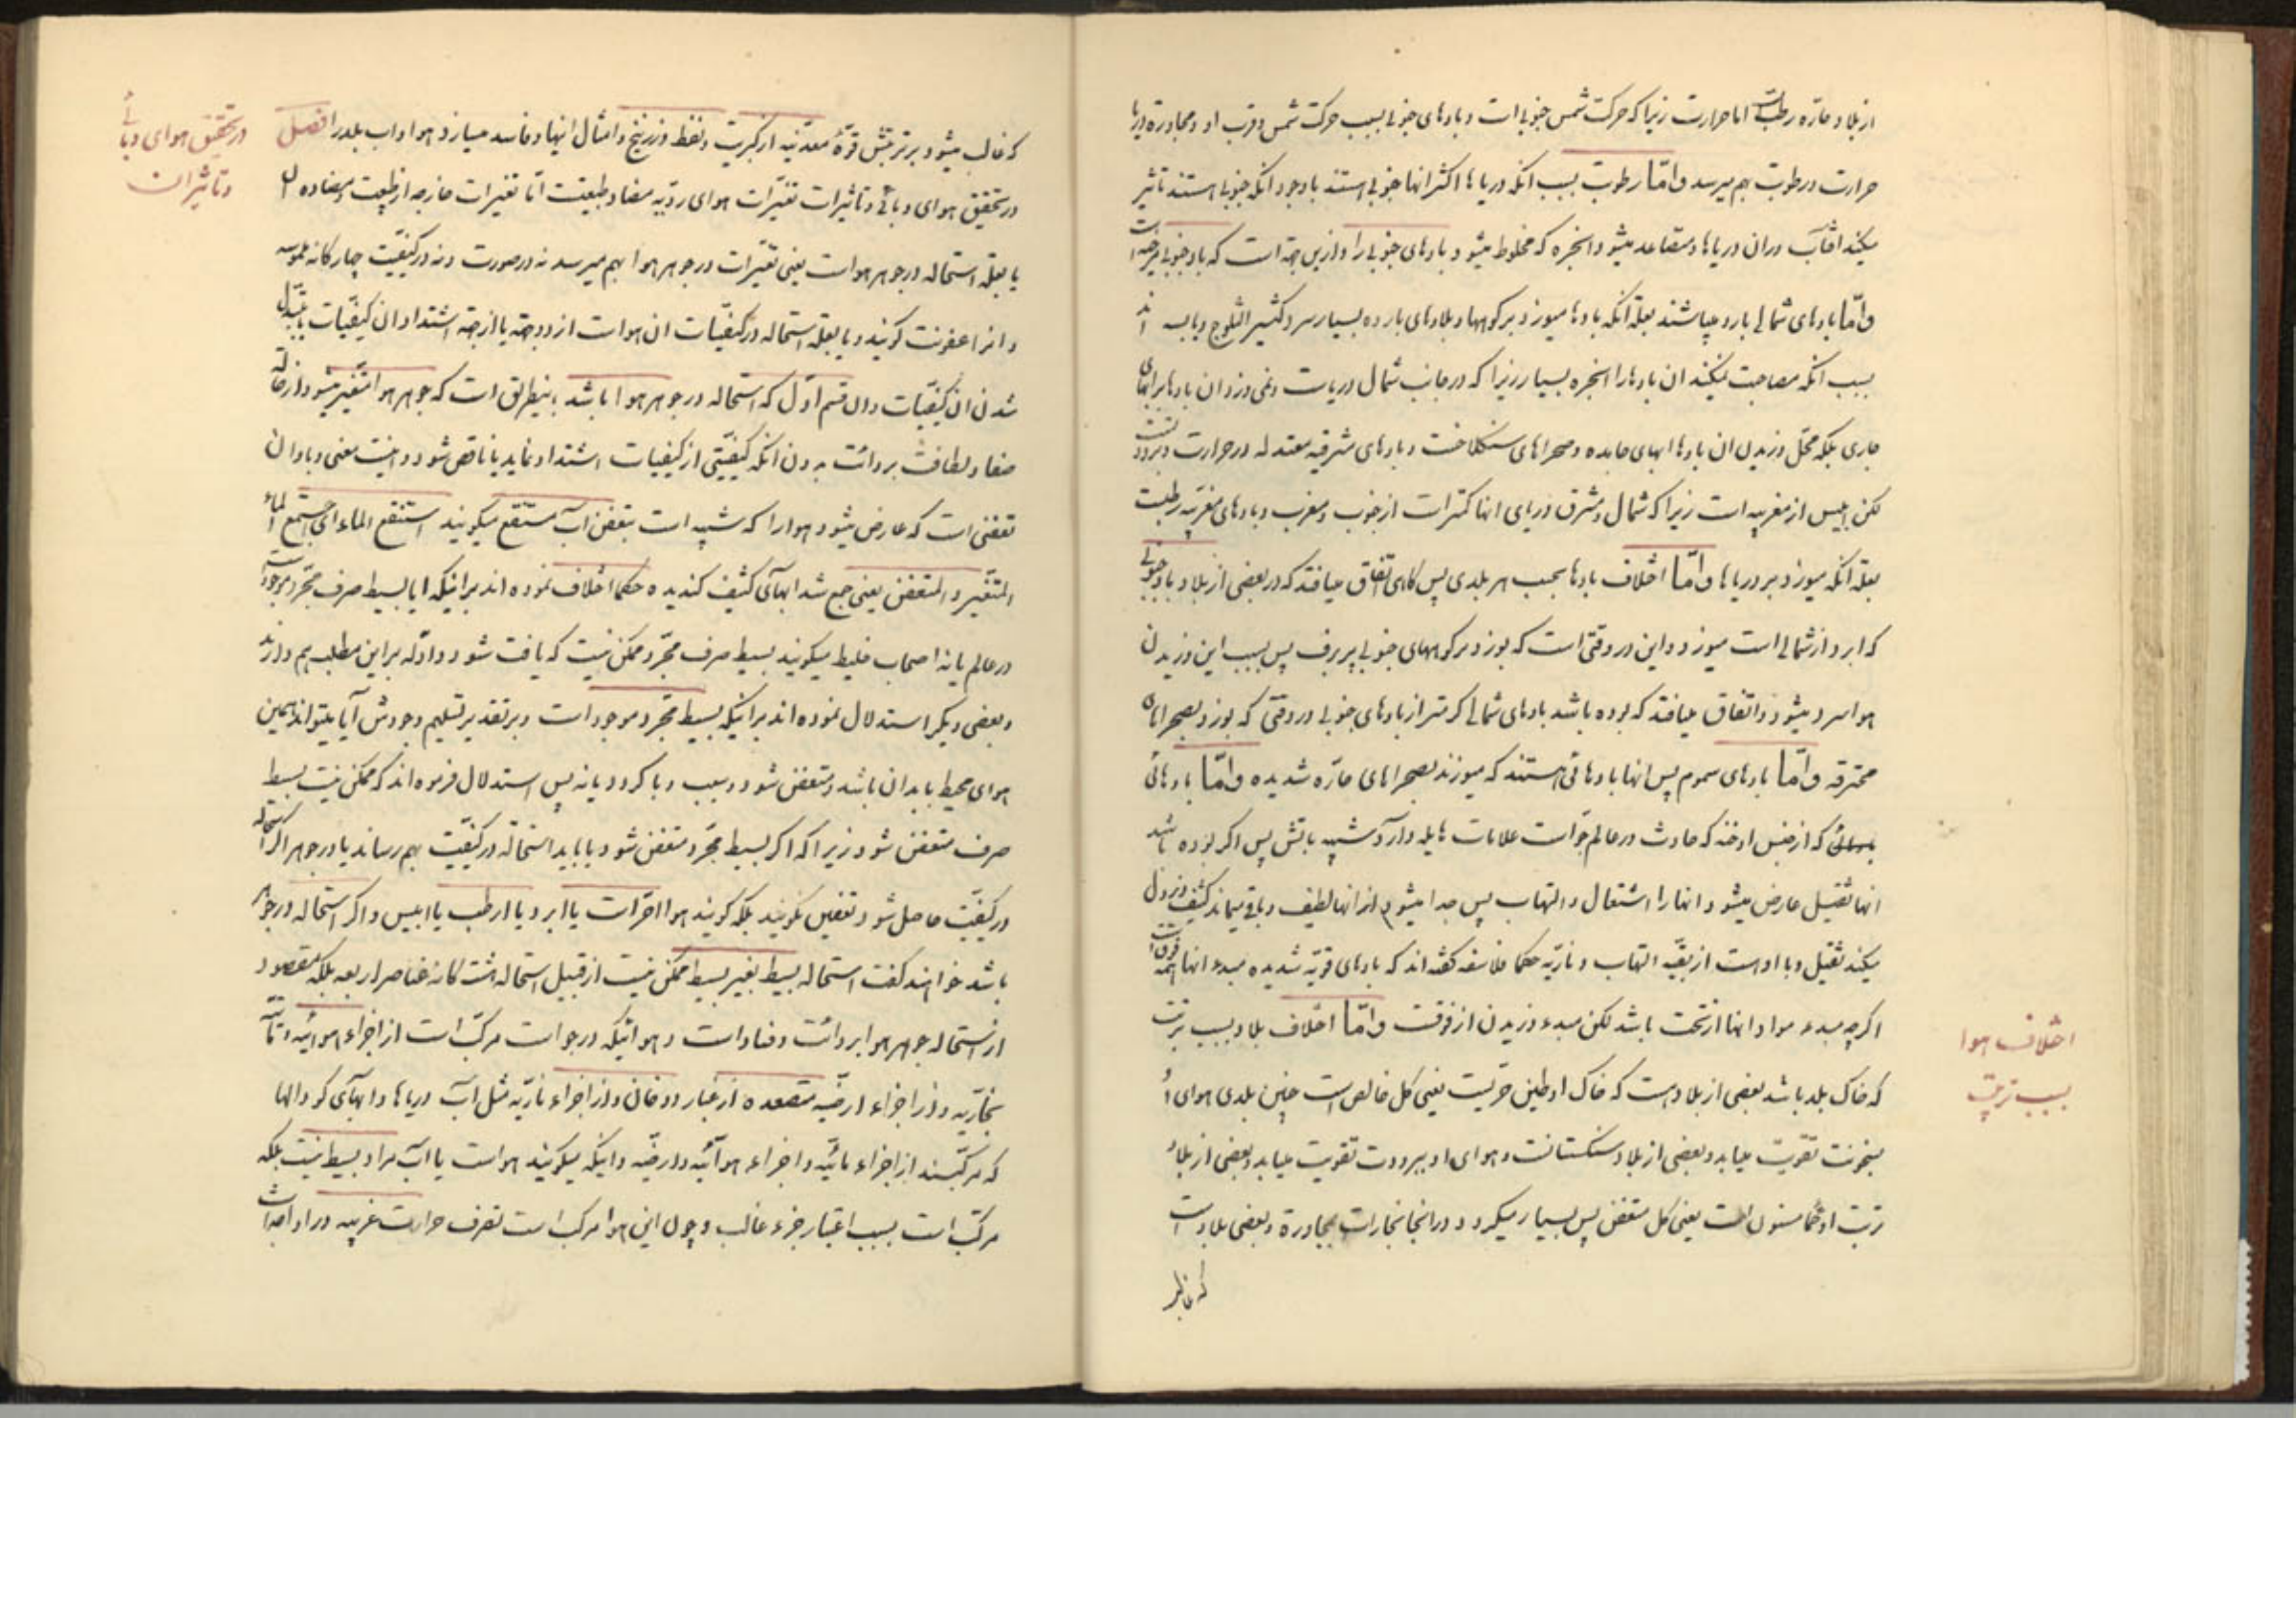 از بلاد حاره رطبست اما حرارت زیرا که حرکت شمس جنوبی است و بادهای جنوبی بسبب حرکت شمس و قرب او و مجاورة دریا
حرارت و رطوبت بهم میرسد و امّا رطوبت بسبب انکه دریاها اکثر انها جنوبی هستند با وجود انکه جنوبی هستند تاثیر
میکند افتاب در ان دریاها و متصاعد میشود ابخره که مخلوط میشود بادهای جنوبی را و ازین جهة است که باد جنوبی مرخی است
و امّا بادهای شمالی بارد میباشند بعلة انکه بادها میوزد بر کوهها و بلادهای بارده بسیار سرد کثیر الثلوج و یابسه اند
بسبب انکه مصاحبت نمیکند ان بادها را ابخره بسیار زیرا که در جانب شمال دریاست و نمی وزد ان بادها بر ابهای
جاری بلکه محل وزیدن ان بادها ابهای جامده و صحراهای سنکلاخست و بادهای مشرقیه معتدله در حرارت و برودتست
لکن ایبس از مغربیه است زیرا که شمال و مشرق دریای انها کمتر است از جنوب و مغرب و بادهای مغربیه رطبست
بعلة انکه میوزد بر دریاها و امّا اختلاف بادها بحسب هر بلدی پس کاهی اتفاق میافتد که در بعضی از بلاد باد جنوبی
که ابرد از شمالی است میوزد و این در وقتی است که بوزد بر کوههای جنوبی پر برف پس بسبب این وزیدن
هوا سرد میشود و اتفاق میافتد که بوده باشد بادهای شمالی کرمتر از بادهای جنوبی در وقتی که بوزد بصحراهای
محترقه و امّا بادهای سموم پس انها بادهائی هستند که میوزند بصحراهای حاره شدیده و امّا بادهائی
که از جنس ادخنه که حادث در عالم جو است علامات هایله دارد شبیه باتش پس اکر بوده باشد
انها ثقیل عارض میشود انها را اشتعال و التهاب پس جدا میشود از انها لطیف و باقی میماند کثیف و نزول
میکند ثقیل و با اوست از بقیّه التهاب و ناریّه حکما فلاسفه کفته اند که بادهای قویّه شدیده مبدء انها فوق است
اکر چه مبدء مواد انها از تحت باشد لکن مبدء وزیدن از فوقست و امّا اختلاف بلاد بسبب تربت
که خاک بلد باشد بعضی از بلاد هست که خاک او طین حرّیست یعنی کل خالص است چنین بلدی هوای او
بسخونت تقویت میابد و بعضی از بلاد سنکستانست و هوای او ببرودت تقویت میابد و بعضی از بلاد
تربت او حمأ مسنون است یعنی کل متعفن پس بسیار میکردد در انجا بخارات بمجاورة و بعضی بلاد است
که غالب
اختلاف هوا
بسبب تربت
که غالب میشود بر تربتش قوّهٔ معدنیه از کبریت و نفط و زرنیخ و امثال اینها و فاسد میسازد هوا و اب بلد را فصل
در تحقیق هوای وبائی و تاثیرات تغیّرات هوای ردیه مضاد طبیعت امّا تغیرات خارجه از طبیعت و مضاده ان
یا بعلة استحاله در جوهر هواست یعنی تغیّرات در جوهر هوا بهم میرسد نه در صورت و نه در کیفیّت چهارکانه ملموسه
و انرا عفونت کویند و یا بعلة استحاله در کیفیّات ان هواست از دو جهة یا از جهة اشتداد ان کیفیّات یا تبدّل
شدن ان کیفیّات و ان قسم اوّل که استحاله در جوهر هوا باشد باینطریق است که جوهر هوا متغیّر میشود از حالة
صفا و لطافت برداءت بدون انکه کیفیّتی از کیفیات اشتداد نماید یا ناقص شود و اینست معنی وبا و ان
تعفنی است که عارض میشود هوا را که شبیه است بتعفن اب مستنقع میکویند استنقع الماء ای اجتمع الماء
المتغیّر و المتعفن یعنی جمع شد ابهای کثیف کندیده حکما اختلاف نموده اند بر اینکه ایا بسیط صرف مجرّد موجود است
در عالم یا نه اصحاب خلیط میکویند بسیط صرف مجرّد ممکن نیست که یافت شود و ادلّه بر این مطلب هم دارند
و بعضی دیکر استدلال نموده اند بر اینکه بسیط مجرّد موجود است و بر تقدیر تسلیم وجودش آیا میتواند همین
هوای محیط بابدان باشد و متعفن شود و سبب وبا کردد یا نه پس استدلال فرموده اند که ممکن نیست بسیط
صرف متعفن شود زیرا که اکر بسیط مجرّد متعفن شود یا باید استحالة در کیفیّت بهم رساند یا در جوهر اکر استحاله
در کیفیّت حاصل شود تعفین نکویند بلکه کویند هوا احرّ است یا ابرد یا ارطب یا ایبس و اکر استحاله در جوهر
باشد خواهند کفت استحاله بسیط بغیر بسیط ممکن نیست از قبیل استحاله هشت کانه عناصر اربعه بلکه مقصود
از استحاله جوهر هوا برداءت و فساد است و هوائیکه در جو است مرکّب است از اجزاء هوائیّه و مائیّه
بخاریّه و از اجزاء ارضیّه متصعده از غبار و دخان و از اجزاء ناریّه مثل آب دریاها و ابهای کودالها
که مرکّبند از اجزاء مائیّه و اجزاء هوآئیّه و ارضیّه و اینکه میکویند هواست یا اب مراد بسیط نیست بلکه
مرکّب است بسبب اعتبار جزء غالب و چون این هوا مرکب است تصرف حرارت غریبه در او
در تحقیق هوای وبائی
و تاثیر ان